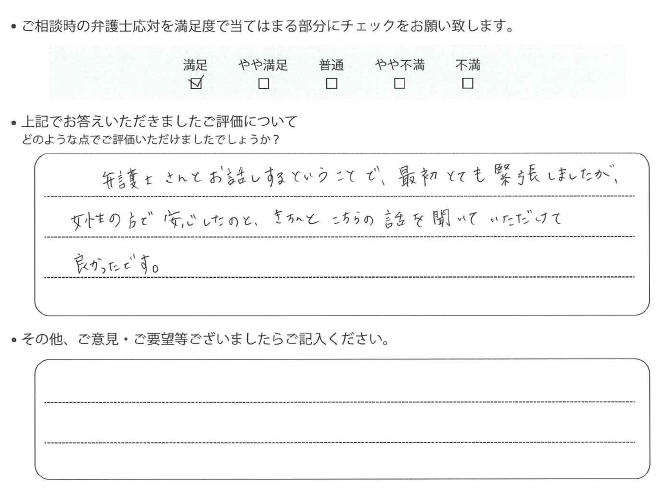 • ご相談時の弁護士応対を満足度で当てはまる部分にチェックをお願い致します。
満足 やや満足 普通 やや不満 不満
☑ ☐ ☐ ☐ ☐
• 上記でお答えいただきましたご評価について
どのような点でご評価いただけましたでしょうか？
弁護士さんとお話しするということで、最初とても緊張しましたが、
女性の方で安心したのと、きちんとこちらの話を聞いていただけて
良かったです。
• その他、ご意見・ご要望等ございましたらご記入ください。